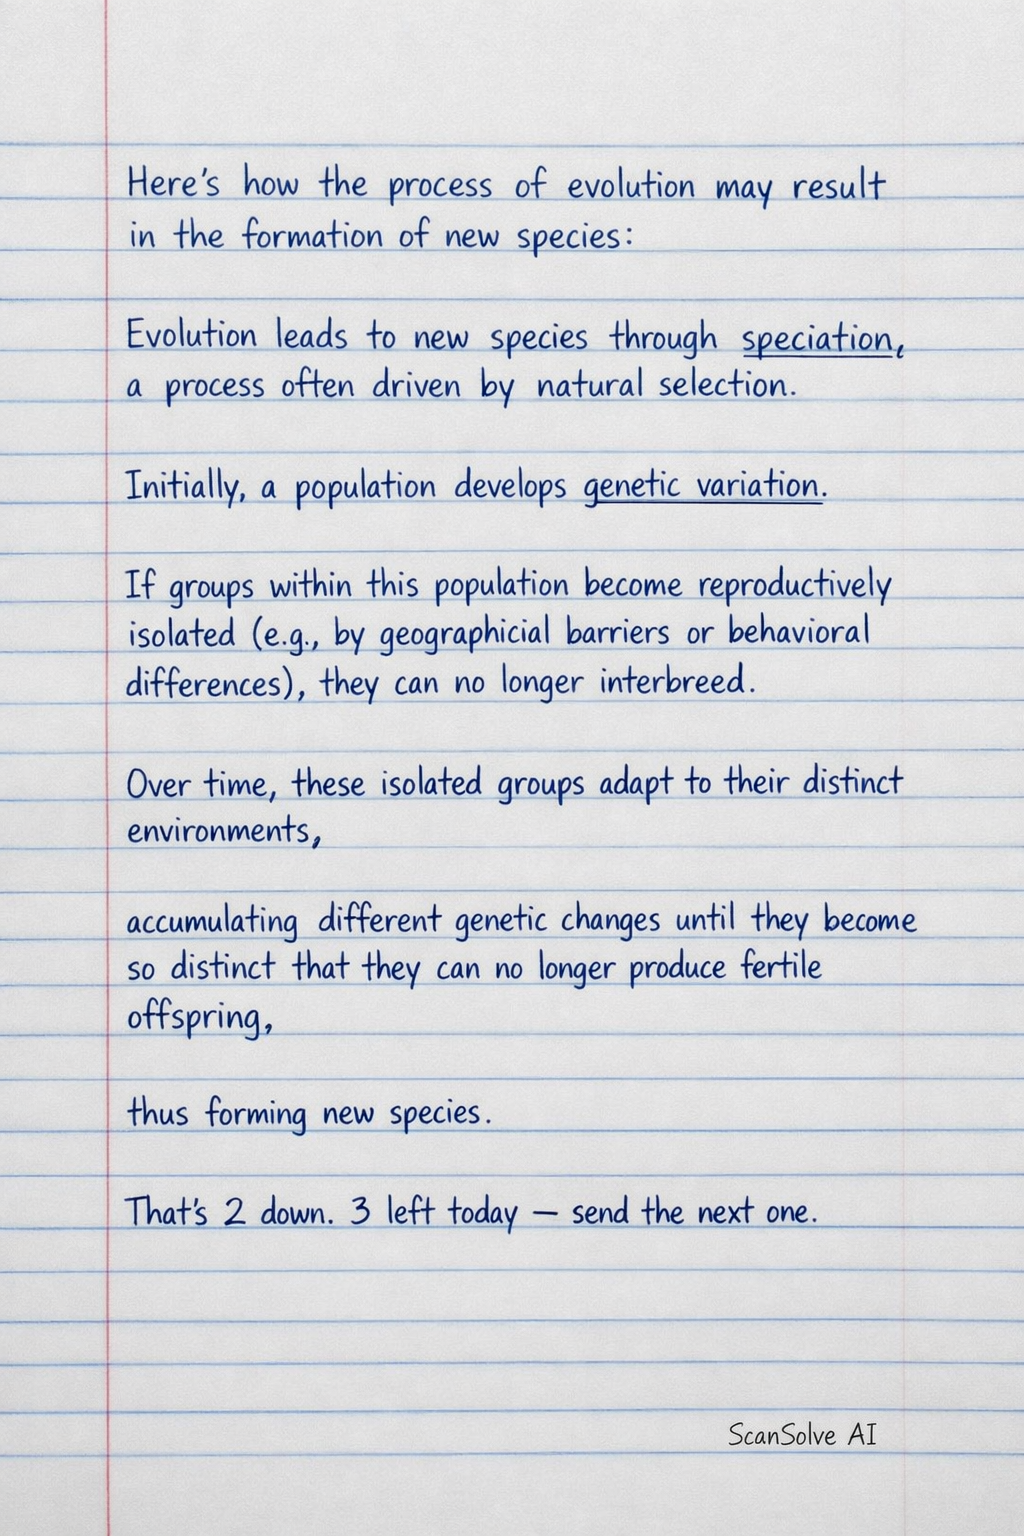 Here's how the process of evolution may result
in the formation of new species:
Evolution leads to new species through speciation,
a process often driven by natural selection.
Initially, a population develops genetic variation.
If groups within this population become reproductively
isolated (e.g., by geographicial barriers or behavioral
differences), they can no longer interbreed.
Over time, these isolated groups adapt to their distinct
environments,
accumulating different genetic changes until they become
so distinct that they can no longer produce fertile
offspring,
thus forming new species.
That's 2 down. 3 left today — send the next one.
ScanSolve AI